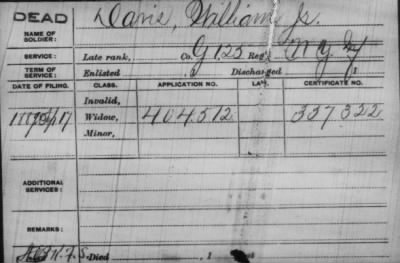 DEAD
NAME OF SOLDIER:
Davis, William Jr.
SERVICE: Late rank, Co. G 125 Reg't N.Y.
TERM OF SERVICE: Enlisted , 1 Discharged , 1
DATE OF FILING. CLASS. APPLICATION NO. LAW. CERTIFICATE NO.
Invalid,
Widow, 404512 337322
Minor,
ADDITIONAL SERVICES:
REMARKS:
Died , 1